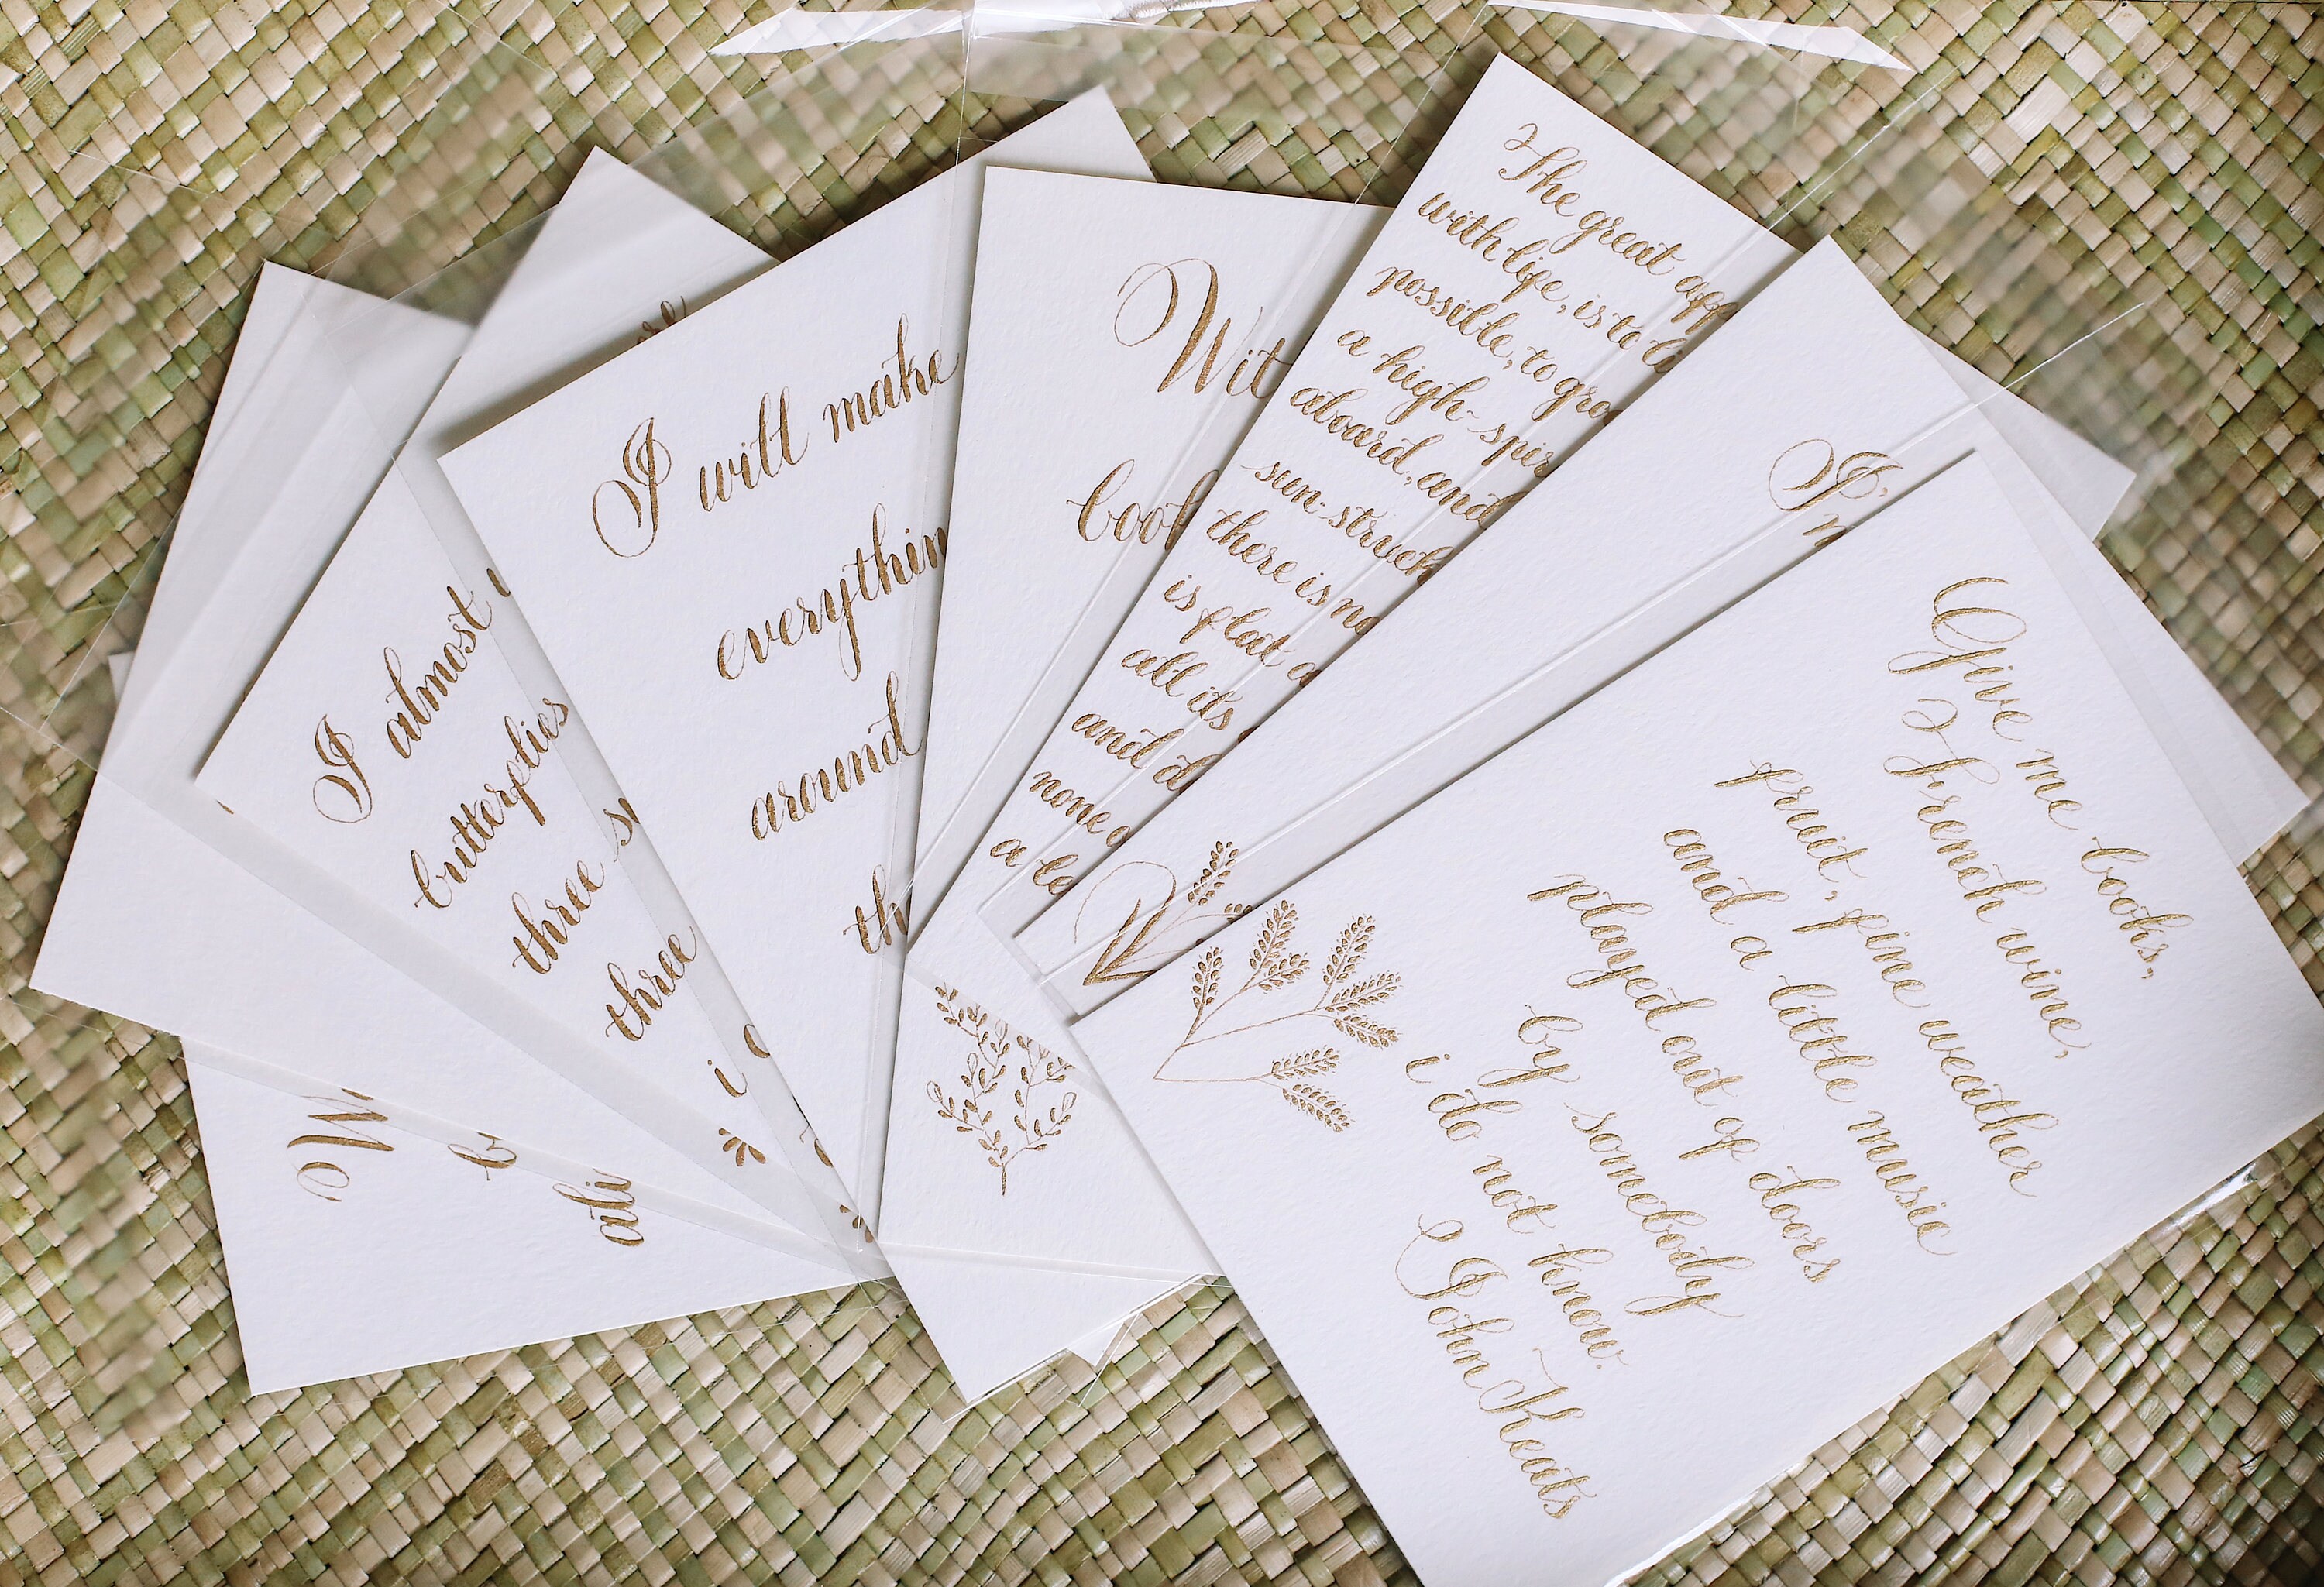 I almost
butterflies
three s
three
i
I will make
everythin
around
th
Wit
The great
with life, is to li
possible, to gro
a high-spir
aboard, and
sun-struck
there is no
is flat a
all its
and d
none o
a be
I'
m
Give me books,
French wine,
fruit, fine weather
and a little music
played out of doors
by somebody
i do not know.
~ John Keats